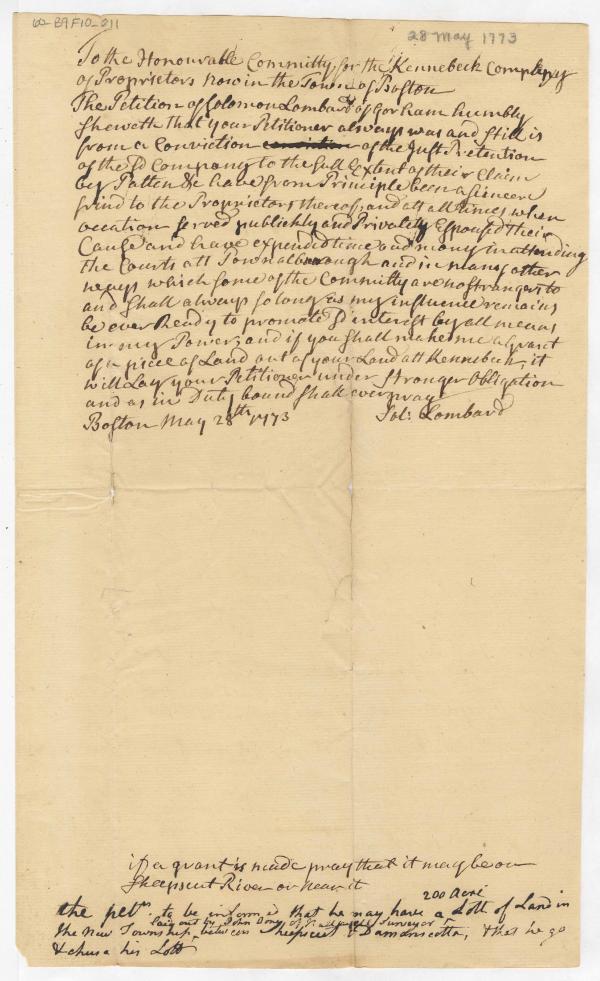 60-B9F10-011
28 May 1773
To the Honourable Committy for the Kennebeck Company
of Proprietors now in the Town of Boston
The Petition of Solomon Lombard of Gorham humbly
Sheweth that your Petitioner always was and still is
from a Conviction of the Just Pretention
of the sd Company to the full Extent of their Claim
by Patten & have from Principle been a sincere
frind to the Proprietors thereof, and att all times when
occation served publickly and Privately Espoused their
Cause and have expended time and mony in attending
the Courts att Pownalborough and in many other
ways which some of the Committy are no strangers to
and Shall always so long as my influence remains
be ever Ready to promote sd interest by all means
in my Power, and if you shall make me a grant
of a piece of Land out of your Land att Kennebeck, it
will Lay your Petitioner under stronger Obligation
and as in Duty bound shall ever pray
Boston May 28th 1773 Sol: Lombard
if a grant is made pray that it may be on
Sheepscut River or near it
200 Acre
the petr. to be informd that he may have a Lott of Land in
Laid out by John Jones surveyor
the New Township between Sheepscut & Damariscotta, that he go
& chuse his Lott